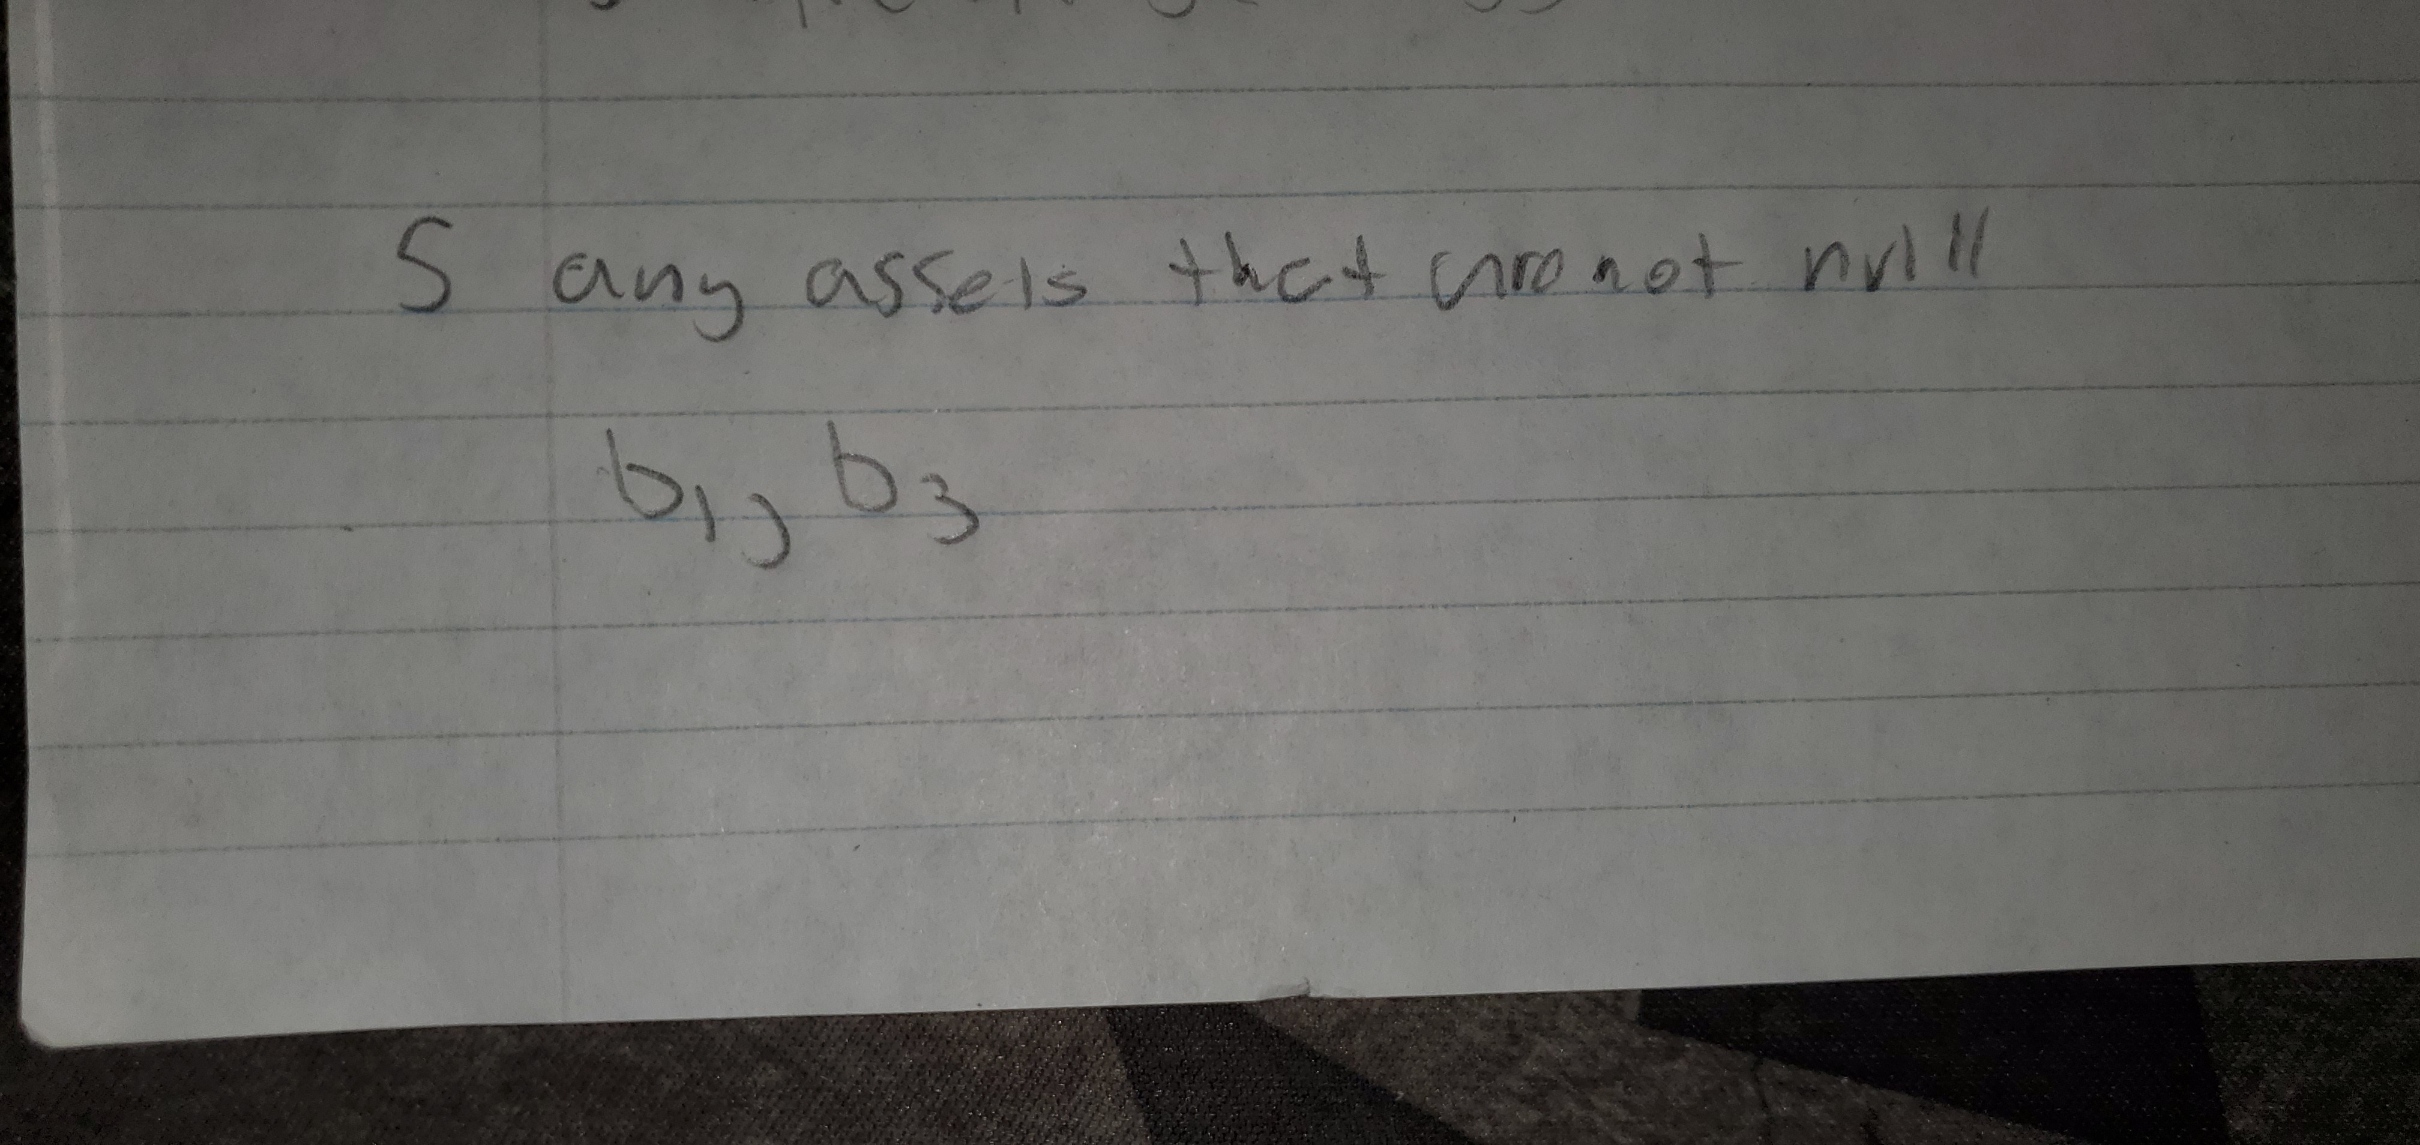 5 any assets that are not null
b1, b3